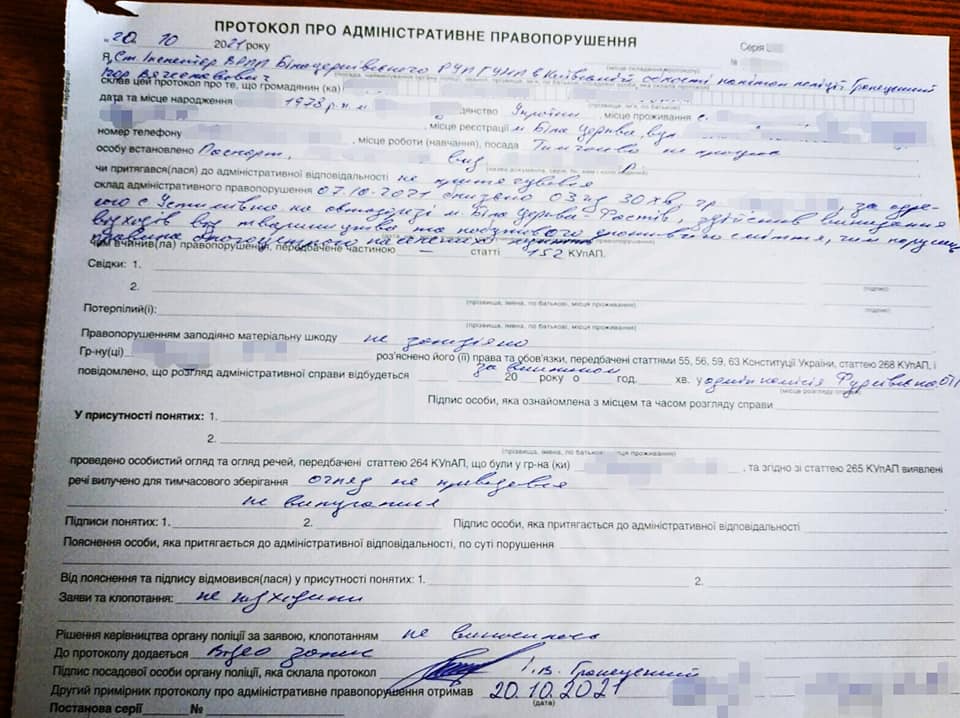 ПРОТОКОЛ ПРО АДМІНІСТРАТИВНЕ ПРАВОПОРУШЕННЯ
„20„ 10 2021 року Серія
Я, Ст. інспектор ВРПП Білоцерківського РУП ГУНП в Київській області капітан поліції Гронецький
Ігор Вячеславович
склав цей протокол про те, що громадянин (ка)
дата та місце народження 1978 р.н. м. Україна, місце проживання с.
, місце реєстрації м. Біла Церква, вул.
номер телефону , місце роботи (навчання), посада Тимчасово не працює
особу встановлено Паспорт, вид
чи притягався(лася) до адміністративної відповідальності не притягувався
склад адміністративного правопорушення 07.10.2021 близько 03 год 30 хв, гр. , за адре-
сою с. Устимівка на автодорозі м. Біла Церква-Фастів, здійснив викидання
відходів від тваринництва та побутового дрібного сміття, чим порушив
правила благоустрою населених
чим вчинив(ла) правопорушення, передбачене частиною — статті 152 КУпАП.
Свідки: 1.
(підпис)
2.
(прізвища, імена, по батькові, місця проживання) (підпис)
Потерпілий(і):
(прізвища, імена, по батькові, місця проживання) (підпис)
Правопорушенням заподіяно матеріальну шкоду не заподіяно
Гр-ну(ці) роз'яснено його (її) права та обов'язки, передбачені статтями 55, 56, 59, 63 Конституції України, статтею 268 КУпАП, і
за викликом
повідомлено, що розгляд адміністративної справи відбудеться 20 року о год. хв. у адмінкомісія Фурсівська ОТГ
(місце розгляду справи)
Підпис особи, яка ознайомлена з місцем та часом розгляду справи
У присутності понятих: 1.
2.
проведено особистий огляд та огляд речей, передбачені статтею 264 КУпАП, що були у гр-на (ки) , та згідно зі статтею 265 КУпАП виявлені
речі вилучено для тимчасового зберігання огляд не проводився
не вилучалися
Підписи понятих: 1. 2. Підпис особи, яка притягається до адміністративної відповідальності
Пояснення особи, яка притягається до адміністративної відповідальності, по суті порушення
Від пояснення та підпису відмовився(лася) у присутності понятих: 1. 2.
Заяви та клопотання: не надходили
Рішення керівництва органу поліції за заявою, клопотанням не виносилось
До протоколу додається Відео запис
Підпис посадової особи органу поліції, яка склала протокол І.В. Гронецький
Другий примірник протоколу про адміністративне правопорушення отримав 20.10.2021
(дата)
Постанова серії №